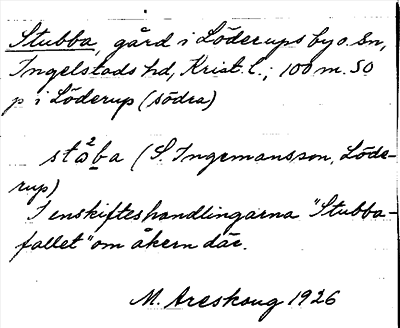 Stubba, gård i Löderups by o. sn,
Ingelstads hd, Krist. l.; 100 m. SO
p i Löderup (södra)
(S. Ingemansson, Löde-
rup)
I enskifteshandlingarna "Stubba-
fallet" om åkern där.
M. Areskoug 1926